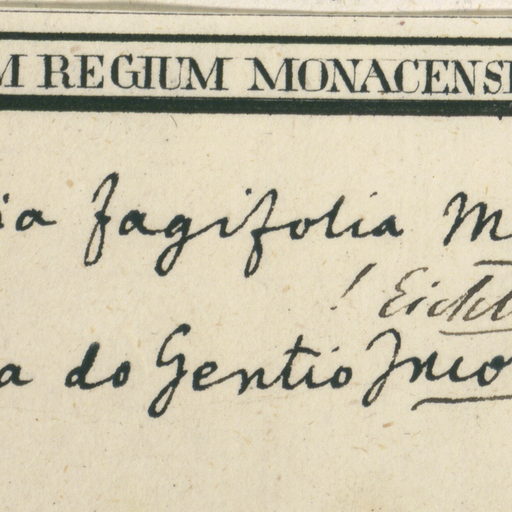 M REGIUM MONACENS
ia fagifolia M
! Eichl
a do Gentio Inco